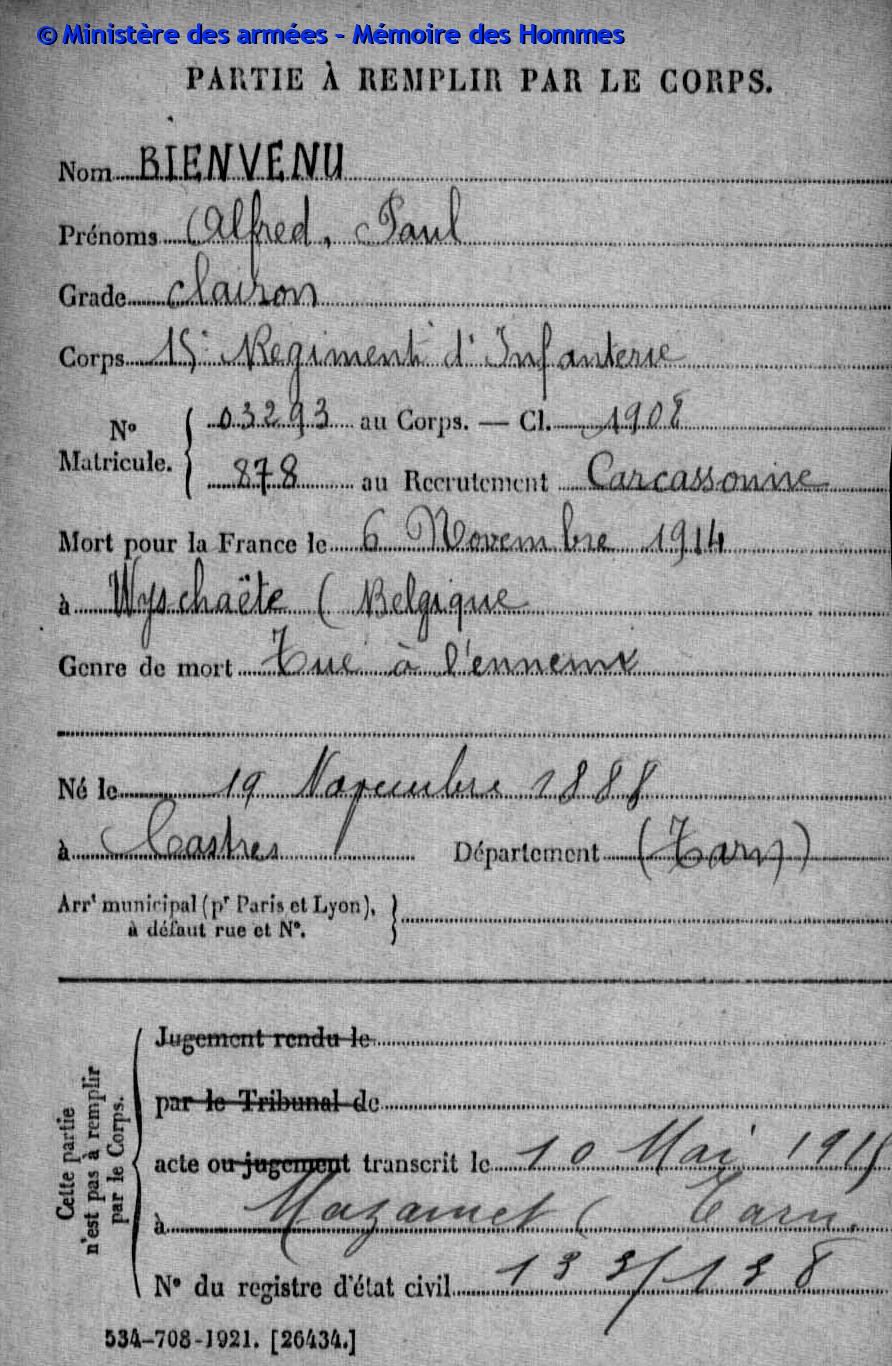 © Ministère des armées - Mémoire des Hommes
PARTIE À REMPLIR PAR LE CORPS.
Nom BIENVENU
Prénoms Alfred, Paul
Grade clairon
Corps 15e Regiment d'Infanterie
No Matricule. { 03293 au Corps. — Cl. 1908
878 au Recrutement Carcassonne
Mort pour la France le 6 Novembre 1914
à Wyschaëte ( Belgique
Genre de mort Tué à l'ennemi
Né le 19 Novembre 1888
à Castres Département (Tarn)
Arrt municipal (pr Paris et Lyon), }
à défaut rue et No.
Cette partie
n'est pas à remplir
par le Corps.
Jugement rendu le
par le Tribunal de
acte ou jugement transcrit le 10 Mai 1915
à Mazamet ( Tarn.
No du registre d'état civil
534-708-1921. [26434.]